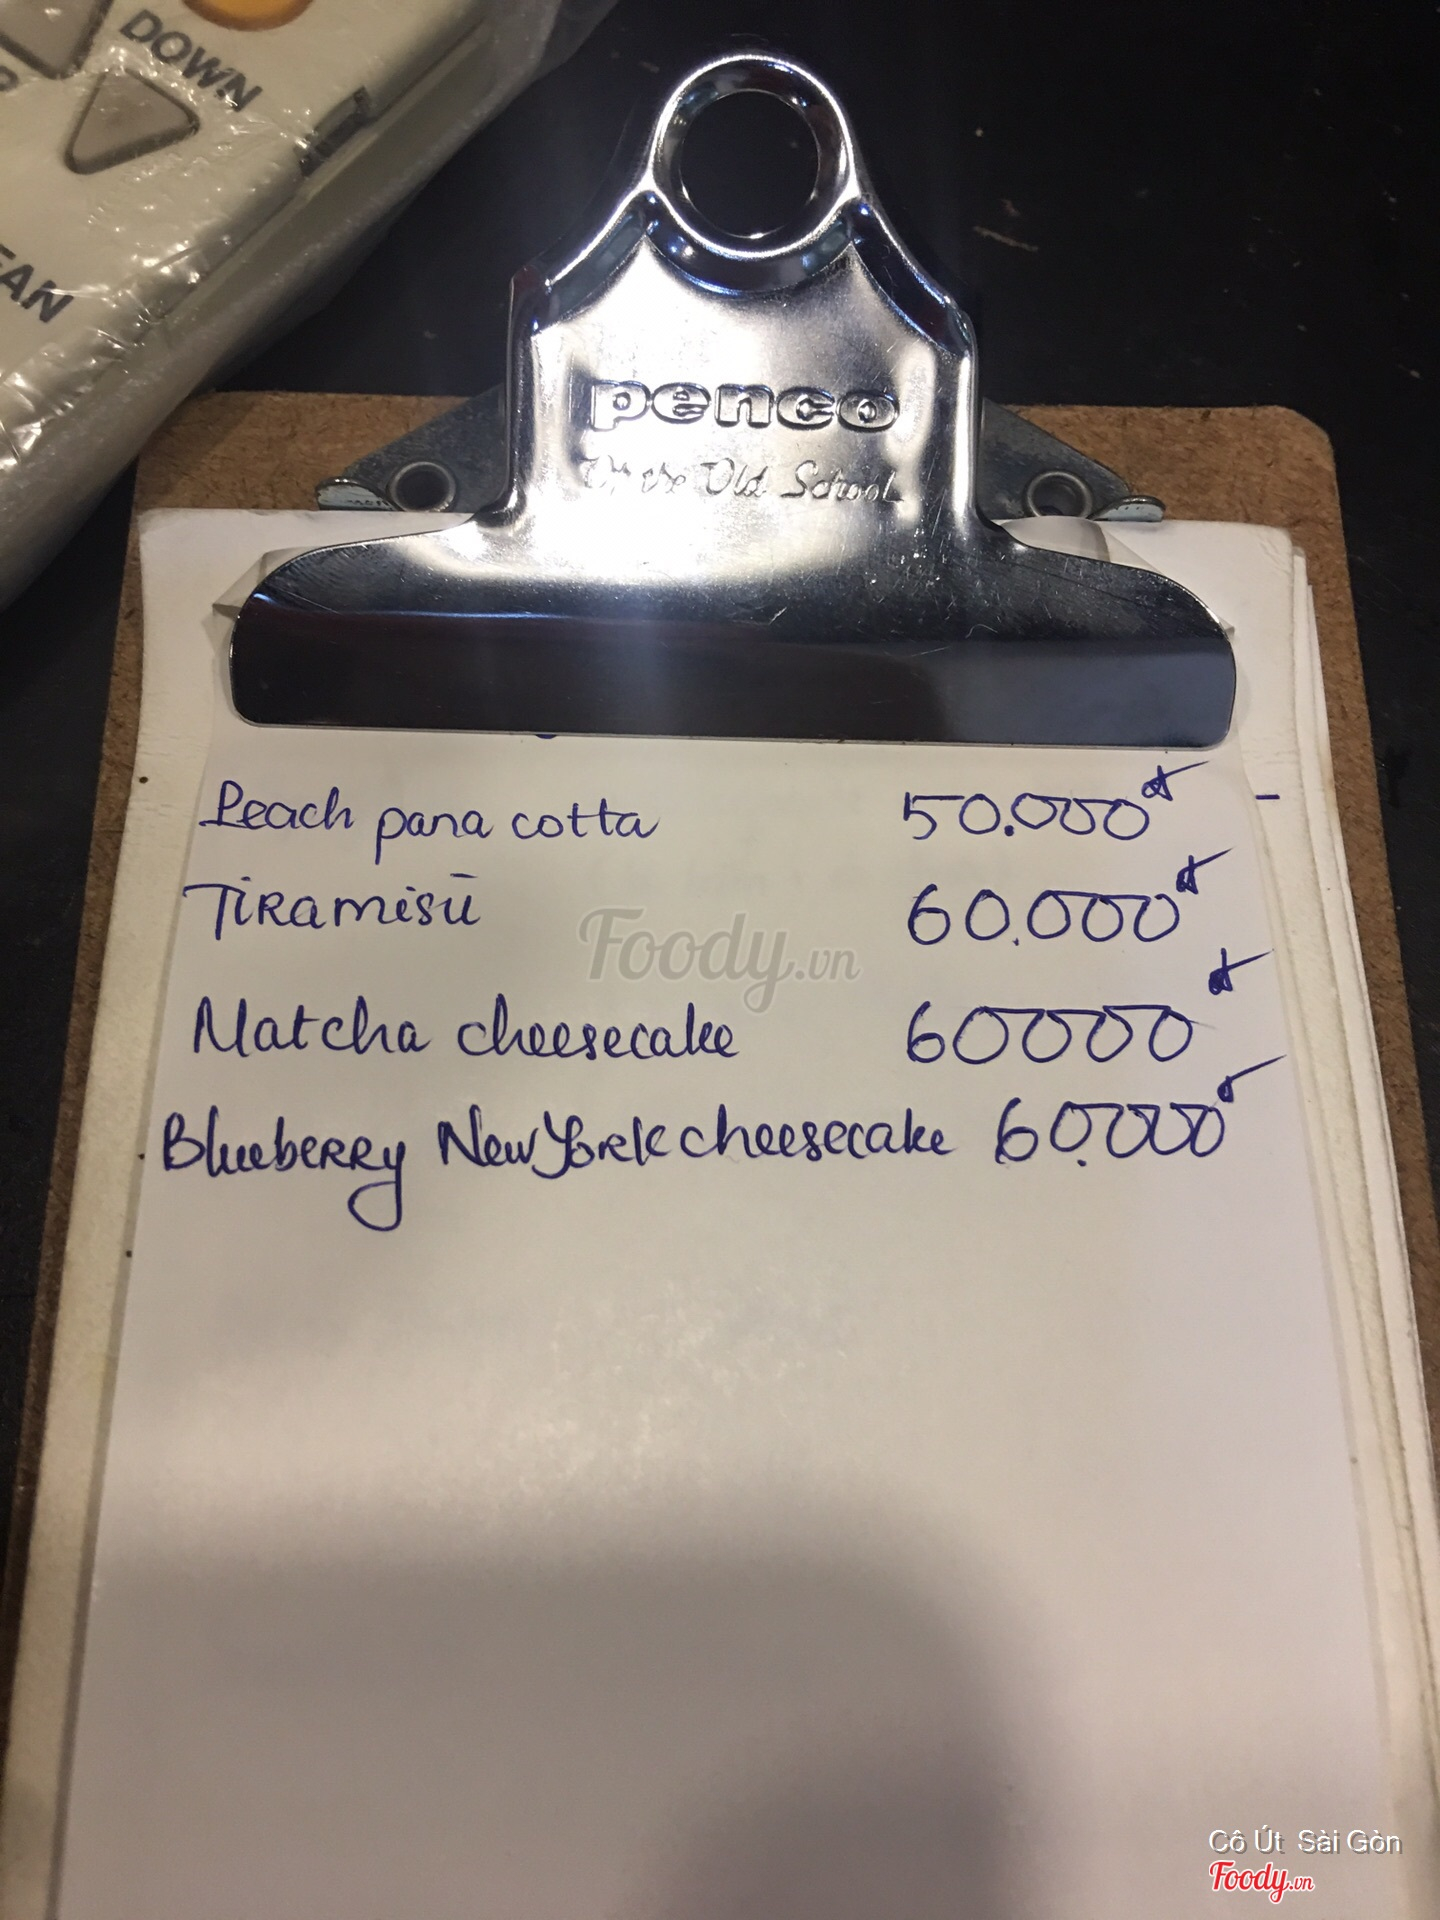 DOWN
FAN
penco
Old School
Peach pana cotta 50.000đ
Tiramisū 60.000đ
Foody.vn
Matcha cheesecake 60000đ
Blueberry New York cheesecake 60.000đ
Cô Út Sài Gòn
Foody.vn